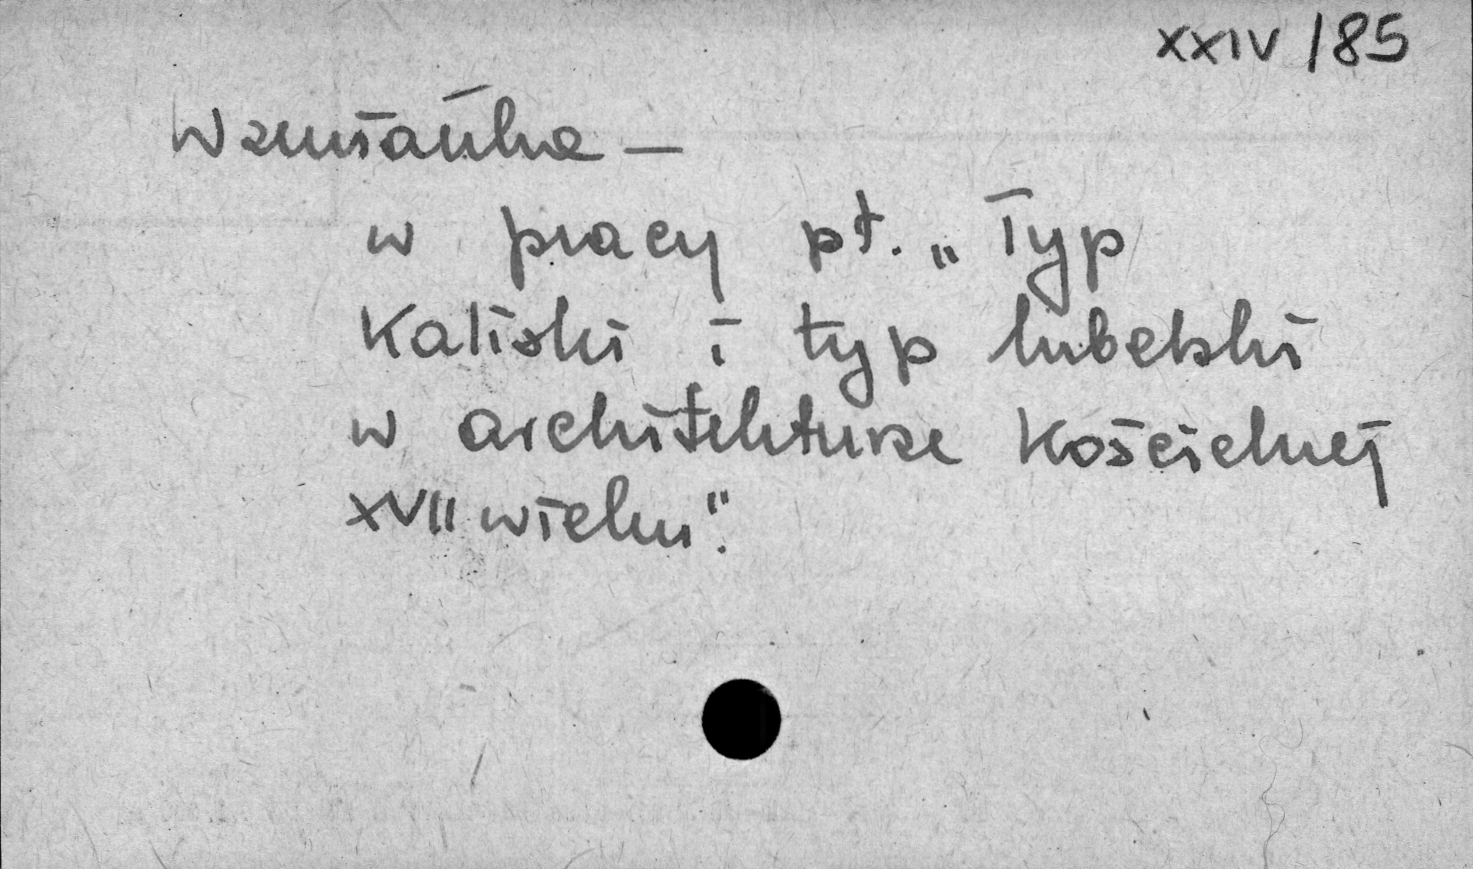 XXIV/85
Wzmianka —
w pracy pt. „Typ
Kaliski i typ lubelski
w architekturze Kościelnej
XVII wieku".